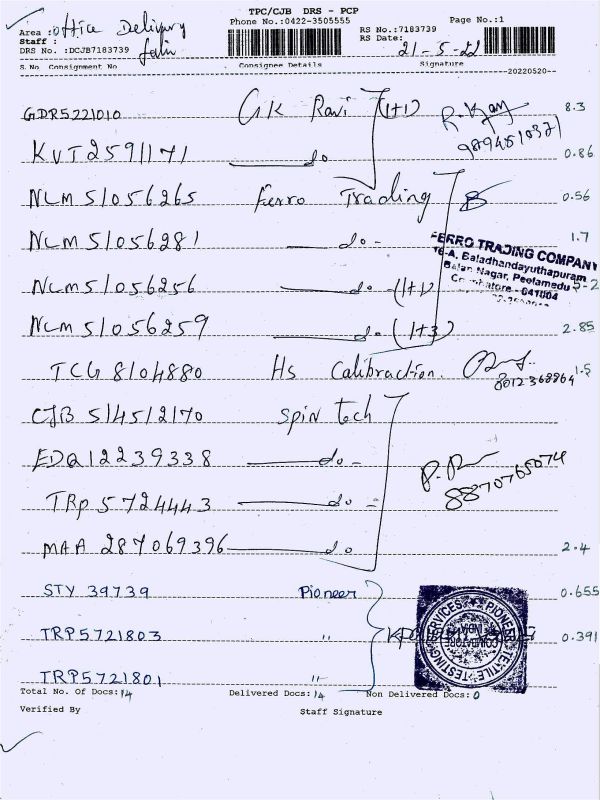 TPC/CJB DRS - PCP
Area : office Delivery
Phone No.:0422-3505555 RS No.:7183739 Page No.:1
Staff :
RS Date: 21-5-22
DRS No. :DCJB7183739
S.No Consignment No Consignee Details Signature
20220520
GDR5221010 GK Ravi (1+1) 8.3
9894510371
KVT2591171 do 0.86
NLM51056265 Ferro Trading 0.56
NLM51056281 do - 1.7
FERRO TRADING COMPANY
16-A, Baladhandayuthapuram
Balan Nagar, Peelamedu
Coimbatore - 641004
NLM51056256 do - (1+1) 5-2
NLM51056259 do - (1+3) 2.85
TCG 8104880 HS Calibraction. 8012368864 1.5
CJB 514512170 Spin tech
EDQ12239338 do -
TRP5724443 do =
8870765074
MAA 287069396 do 2.4
STY 39739 Pioneer 0.655
TRP5721803 " 0.391
PIONEER TEXTILE TESTING SERVICES
COIMBATORE
INDIA
TRP5721801 "
Total No. Of Docs:14 Delivered Docs:14 Non Delivered Docs:0
Verified By Staff Signature